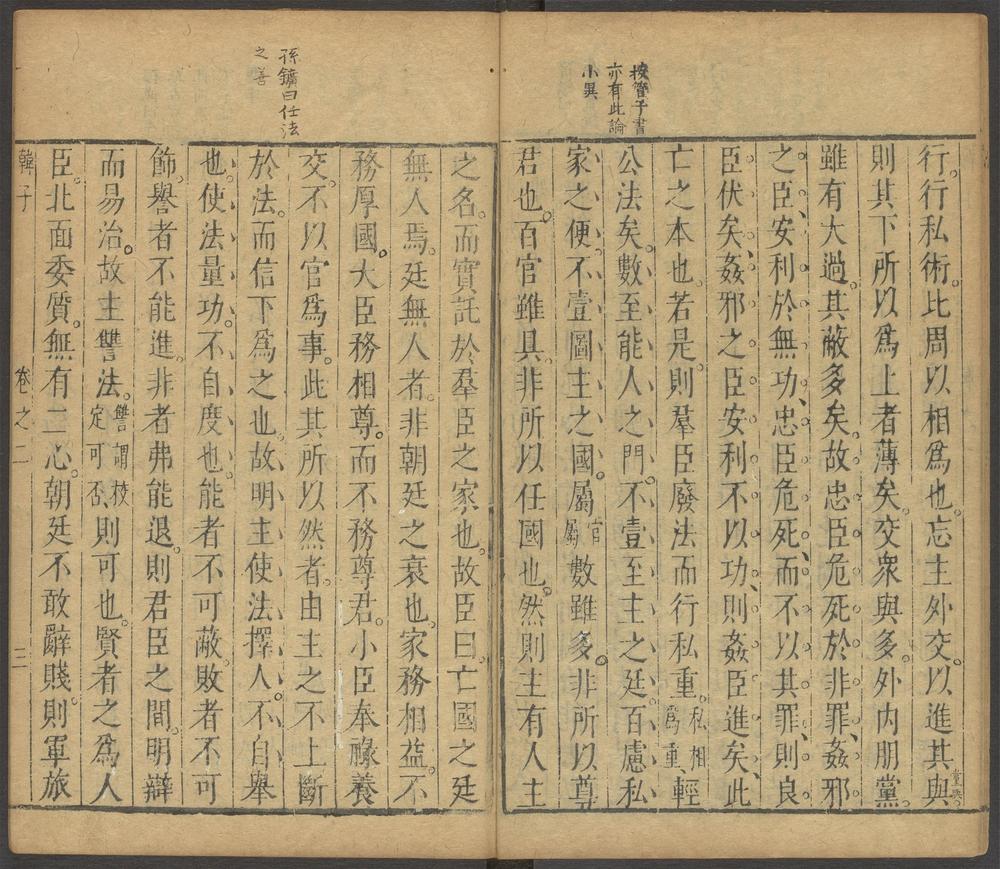 按管子書
亦有此論
小異
行行私術。比周以相爲也。忘主外交。以進其與
則其下所以爲上者薄矣。交衆與多。外內朋黨。
雖有大過。其蔽多矣。故忠臣危死於非罪、姦邪
之臣、安利於無功、忠臣危死、而不以其罪、則良
臣伏矣、姦邪之臣安利不以功、則姦臣進矣、此
亡之本也若是。則羣臣廢法而行私重。私相爲重輕
公法矣。數至能人之門。不壹至主之廷。百慮私
家之便。不壹圖主之國。屬官屬數雖多。非所以尊
君也。百官雖具。非所以任國也。然則主有人主
孫鑛曰任法
之善
之名。而實託於羣臣之家也。故臣曰。亡國之廷
無人焉。廷無人者。非朝廷之衰也。家務相益。不
務厚國。大臣務相尊。而不務尊君。小臣奉祿養
交。不以官爲事。此其所以然者。由主之不上斷
於法。而信下爲之也。故明主使法擇人。不自舉
也。使法量功。不自度也。能者不可蔽。敗者不可
飾。譽者不能進。非者弗能退。則君臣之間。明辯
而易治。故主讐法。讐謂校定可否則可也。賢者之爲人
臣。北面委質。無有二心。朝廷不敢辭賤。則軍旅
韓子
卷之二
三